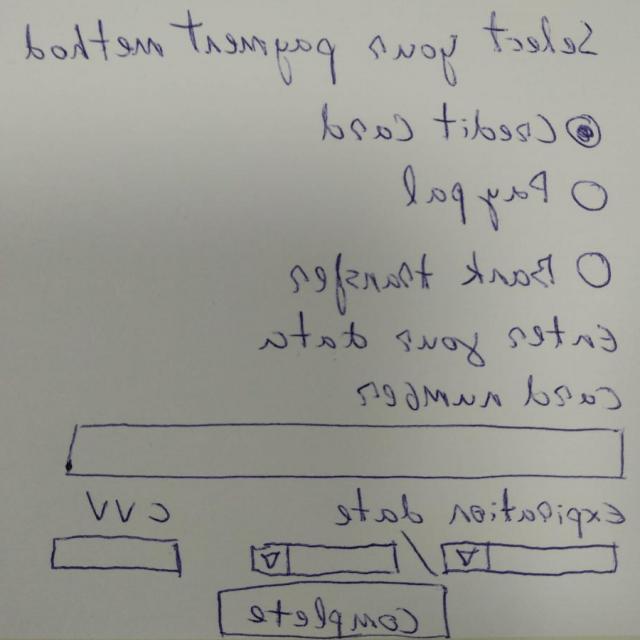 Select your payment method
Credit Card
Paypal
Bank transfer
Enter your data
Card number
Expiration date CVV
/
Complete